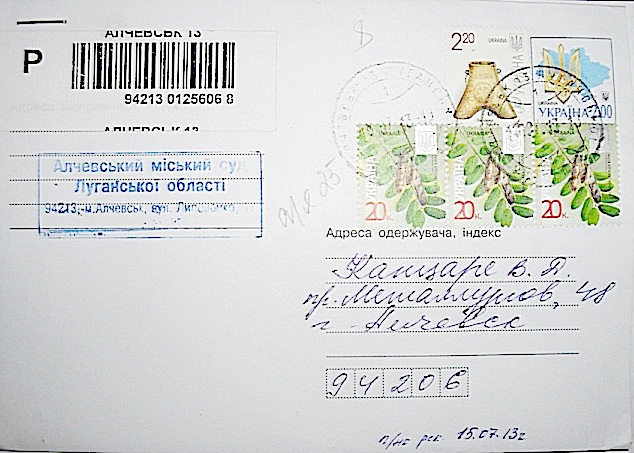 АЛЧЕВСЬК 13
Р
94213 0125606 8
АЛЧЕВСЬК 13
Алчевський міський суд
Луганської області
94213, м.Алчевськ, вул.
2.20
УКРАЇНА
УКРАЇНА 2.00
УКРАЇНА
20к.
УКРАЇНА
20к.
20к.
а/я 25
Адреса одержувача, індекс
Канцаре В. Д.
пр. Металлургов, 48
г. Алчевск
94206
15.07.13г